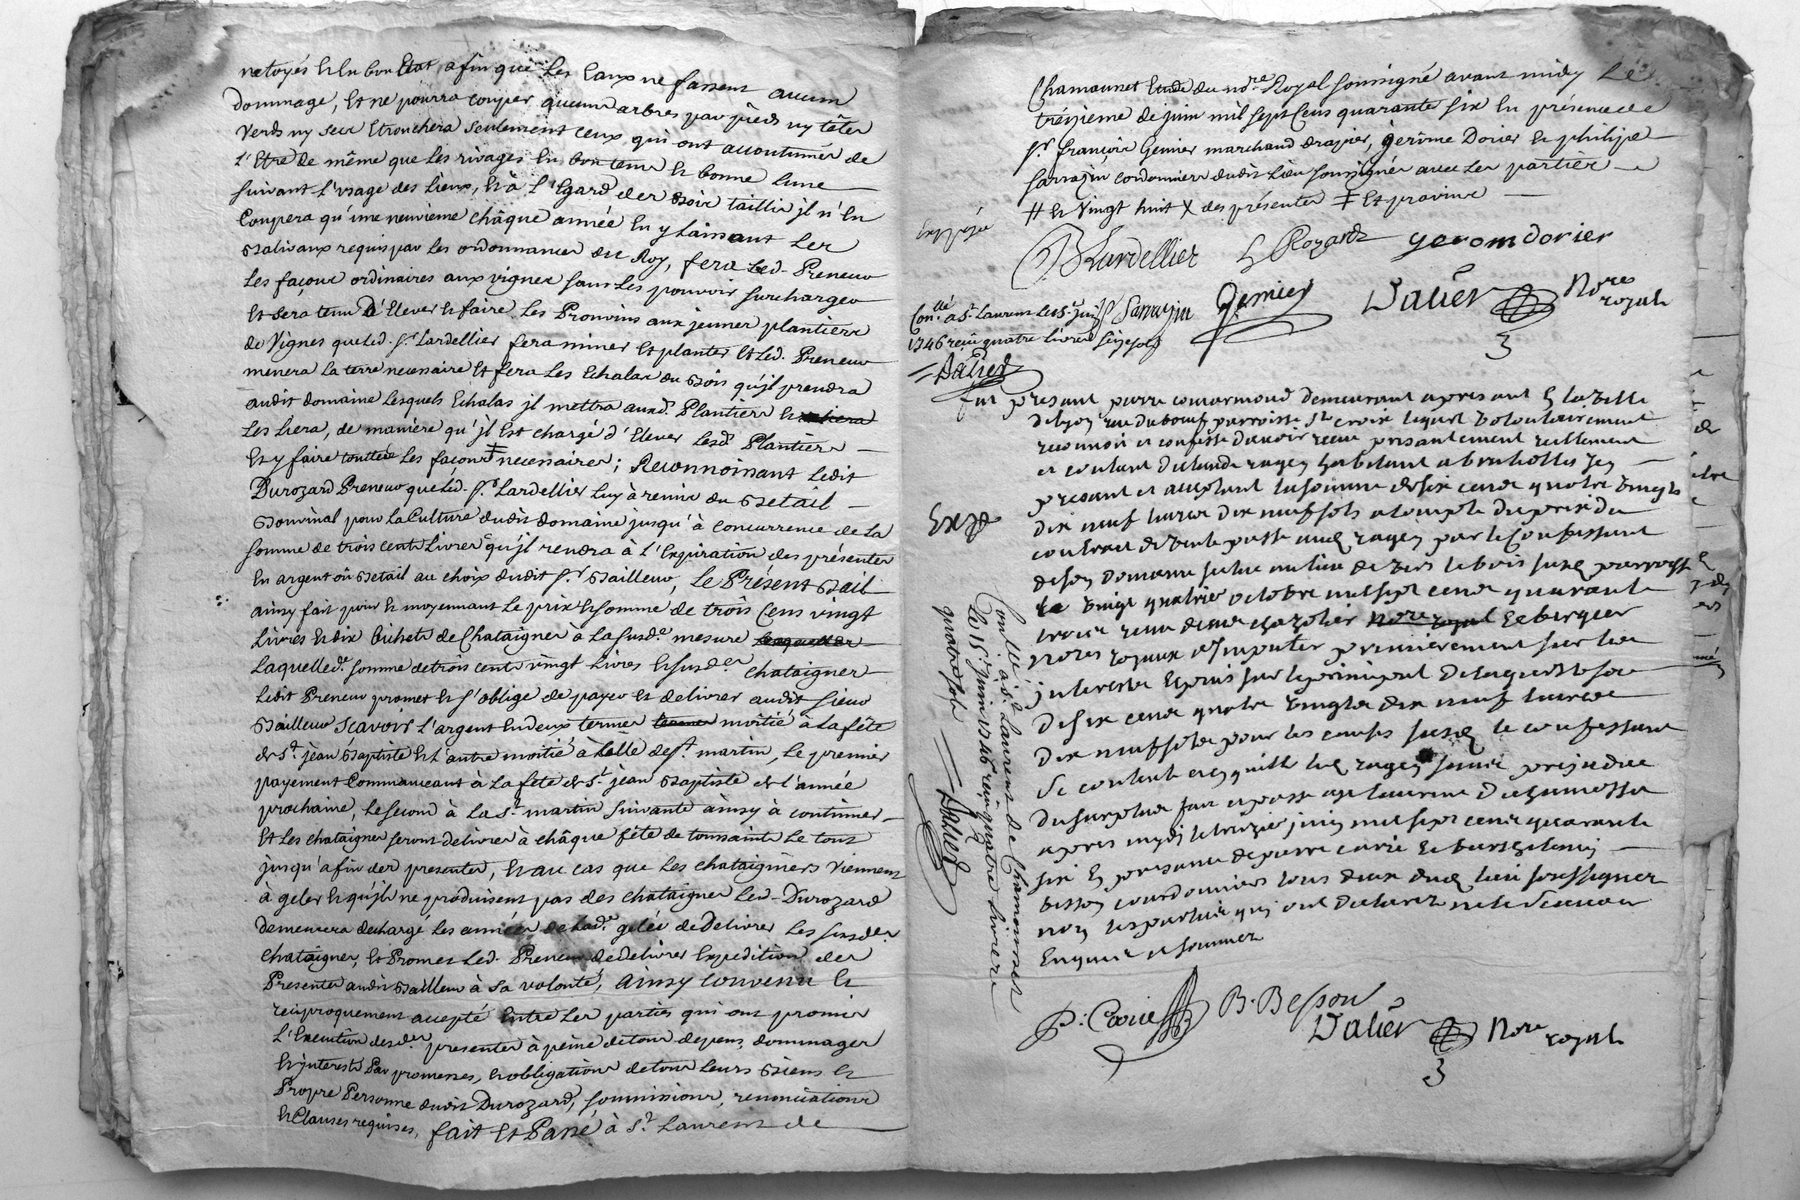 netoyés et en bon état afin que les eaux ne fassent aucun
dommage, Et ne pourra couper aucuns arbres par pieds ny têtes
verds ny secs Etronchera seulement ceux qui ont accoutumés de
l'Etre de même que les rivages En bon tems et bonne lune
suivant l'usage des lieux, Et à l'Egard des Bois taillis jl n'En
Coupera qu'une neuvième châque année En y laissant les
Balivaux requis par les ordonnances du Roy, fera led. Preneur
les façons ordinaires aux vignes sans les pouvoir surcharger
Et sera tenu d'Elever et faire les Provins aux jeunes plantiers
de Vignes que led. Sr. Lardellier fera miner Et planter Et led. Preneur
menera la terre necessaire Et fera les Echalas du Bois qu'jl prendra
audit domaine lesquels Echalas jl mettra auxd. Plantiers Et
les liera, de manière qu'jl Est chargé d'Elever lesd. Plantiers
Et y faire touttes les façons ‡ necessaires; Reconnoissant ledit
Durozard Preneur que led. Sr. Lardellier luy à remis du Betail
Bouvinal pour la Culture dudit domaine jusqu'à concurrence de la
somme de trois cents livres qu'jl rendra à l'Expiration des présentes
En argent où Betail au choix dudit Sr. Bailleur, Le Présent Bail
ainsy fait pour et moyennant le prix et somme de trois Cens vingt
livres Et dix Bichets de Chataignes à la susde. mesure lesquelles
Laquelle de. somme de trois cents vingt livres et susdes chataignes
ledit Preneur promet et s'oblige de payer et delivrer audit sieur
Bailleur Scavoir l'argent En deux termes moitié à la fête
de St. jean Baptiste et l'autre moitié à celle de St. martin, le premier
payement Commanceant à la fête de St jean Baptiste de l'année
prochaine, le second à la St. martin suivante ainsy à continuer
Et les chataignes seront delivrés à châque fête de toussaint le tout
jusqu'a fin des presentes, Et au cas que les chataigniers viennent
à geler et qu'jls ne produisent pas des chataignes led. Durozard
demeurera dechargé les années de lade. gelée de Delivrer les susdes.
chataignes, Et Promet led. Preneur de delivrer Expedition des
Presentes audit Bailleur à sa volonté, ainsy convenu et
reciproquement accepté Entre les parties qui ont promis
L'Execution desdes presentes à peine de tous depens, dommages
Et jnterests Par promesses, Et obligations de tous leurs Biens Et
Propre Personne dudit Durozard, soumissions, renonciations
Et Clauses requises, fait Et Passé à St. Laurent de
Chamousset Etude du nore. Royal soussigné avant midy Le
trézieme de juin mil sept Cens quarante six En présence de
Sr. françois Gemier marchand drapier, gerôme Dorier et philipe
Sarrazin cordonniers dudit lieu soussignés avec les parties
# Et vingt huit X des présentes ‡ Et provins
Expedié
B Lardellier
gerom dorier
Conllé à St. Laurent le 15e. juin
1746 reçu quatre livres seize sols
Dalier
P Sarrazin
Gemier
Dalier
Nore
royal
fut présant pierre demeurant a présant En la Ville
de Lyon rue du bouf parroisse Ste croix lequel volontairement
reconnoit et confesse davoir receu présantement reellement
et contant de Claude ragey habitant a brullolles jcy
présant et acceptant la somme de six cents quatre vingts
dix neuf livres dix neuf sols a compte du prix du
contrat de vente passé aud. ragey par le Confessant
de son Domaine
Exped
le vingt quatrie octobre mil sept cents quarante
trois receu Et berger
nores royaux a jmputer premierement sur les
jnterests Et puis sur le principal De laquelle somme
de six cents quatre vingts dix neuf livres
dix neuf sols pour les causes susd. le confessant
se contente et quitte led. ragey sans prejudice
du surplus fait et passé a st laurent de chamousset
apres mydy le treizie juin mil sept cents quarante
six En presance de pierre coirie Et barthelemy
besson courdonniers tous deux dud. lieu soussignes
non les parties qui ont declarés ne le scavoir
Enquis et sommes
Conllé à St. Laurent de Chamousset
le 15e. juin 1746 reçu quatre livres
quatre sols
Dalier
P. Coirie
B. Besson
Dalier
Nore
royal